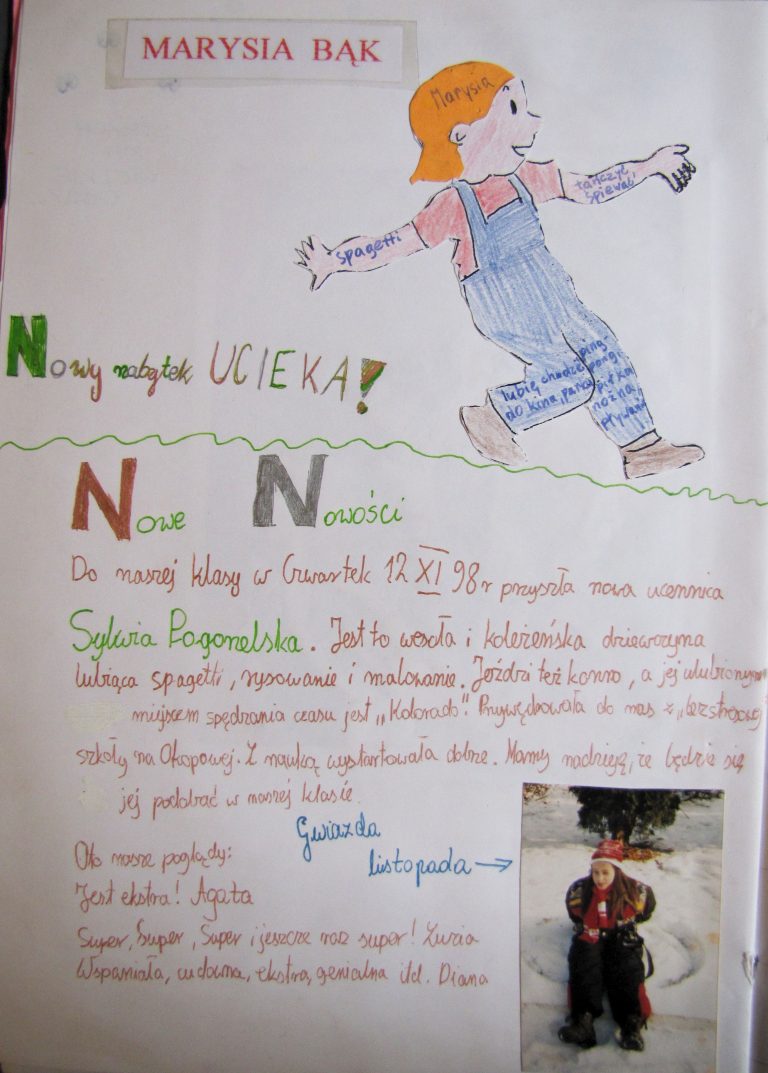 MARYSIA BĄK
Marysia
tańczyć
śpiewać
spagetti
lubię chodzić
do kina, parku
ping-
pongi,
piłka
nożna
pływanie
Nowy nabytek UCIEKA!
Nowe Nowości
Do naszej klasy w Czwartek 12 XI 98 r przyszła nowa uczennica
Sylwia Pogonelska. Jest to wesoła i koleżeńska dziewczyna
lubiąca spagetti, rysowanie i malowanie. Jeździ też konno, a jej ulubionym
miejscem spędzania czasu jest „Kolorado". Przywędrowała do nas z „bezstresowej
szkoły na Okopowej. Z nauką wystartowała dobrze. Mamy nadzieję, że będzie się
jej podobać w naszej klasie.
Gwiazda
listopada →
Oto nasze poglądy:
Jest ekstra! Agata
Super, Super, Super i jeszcze raz super! Zuzia
Wspaniała, cudowna, ekstra, genialna itd. Diana